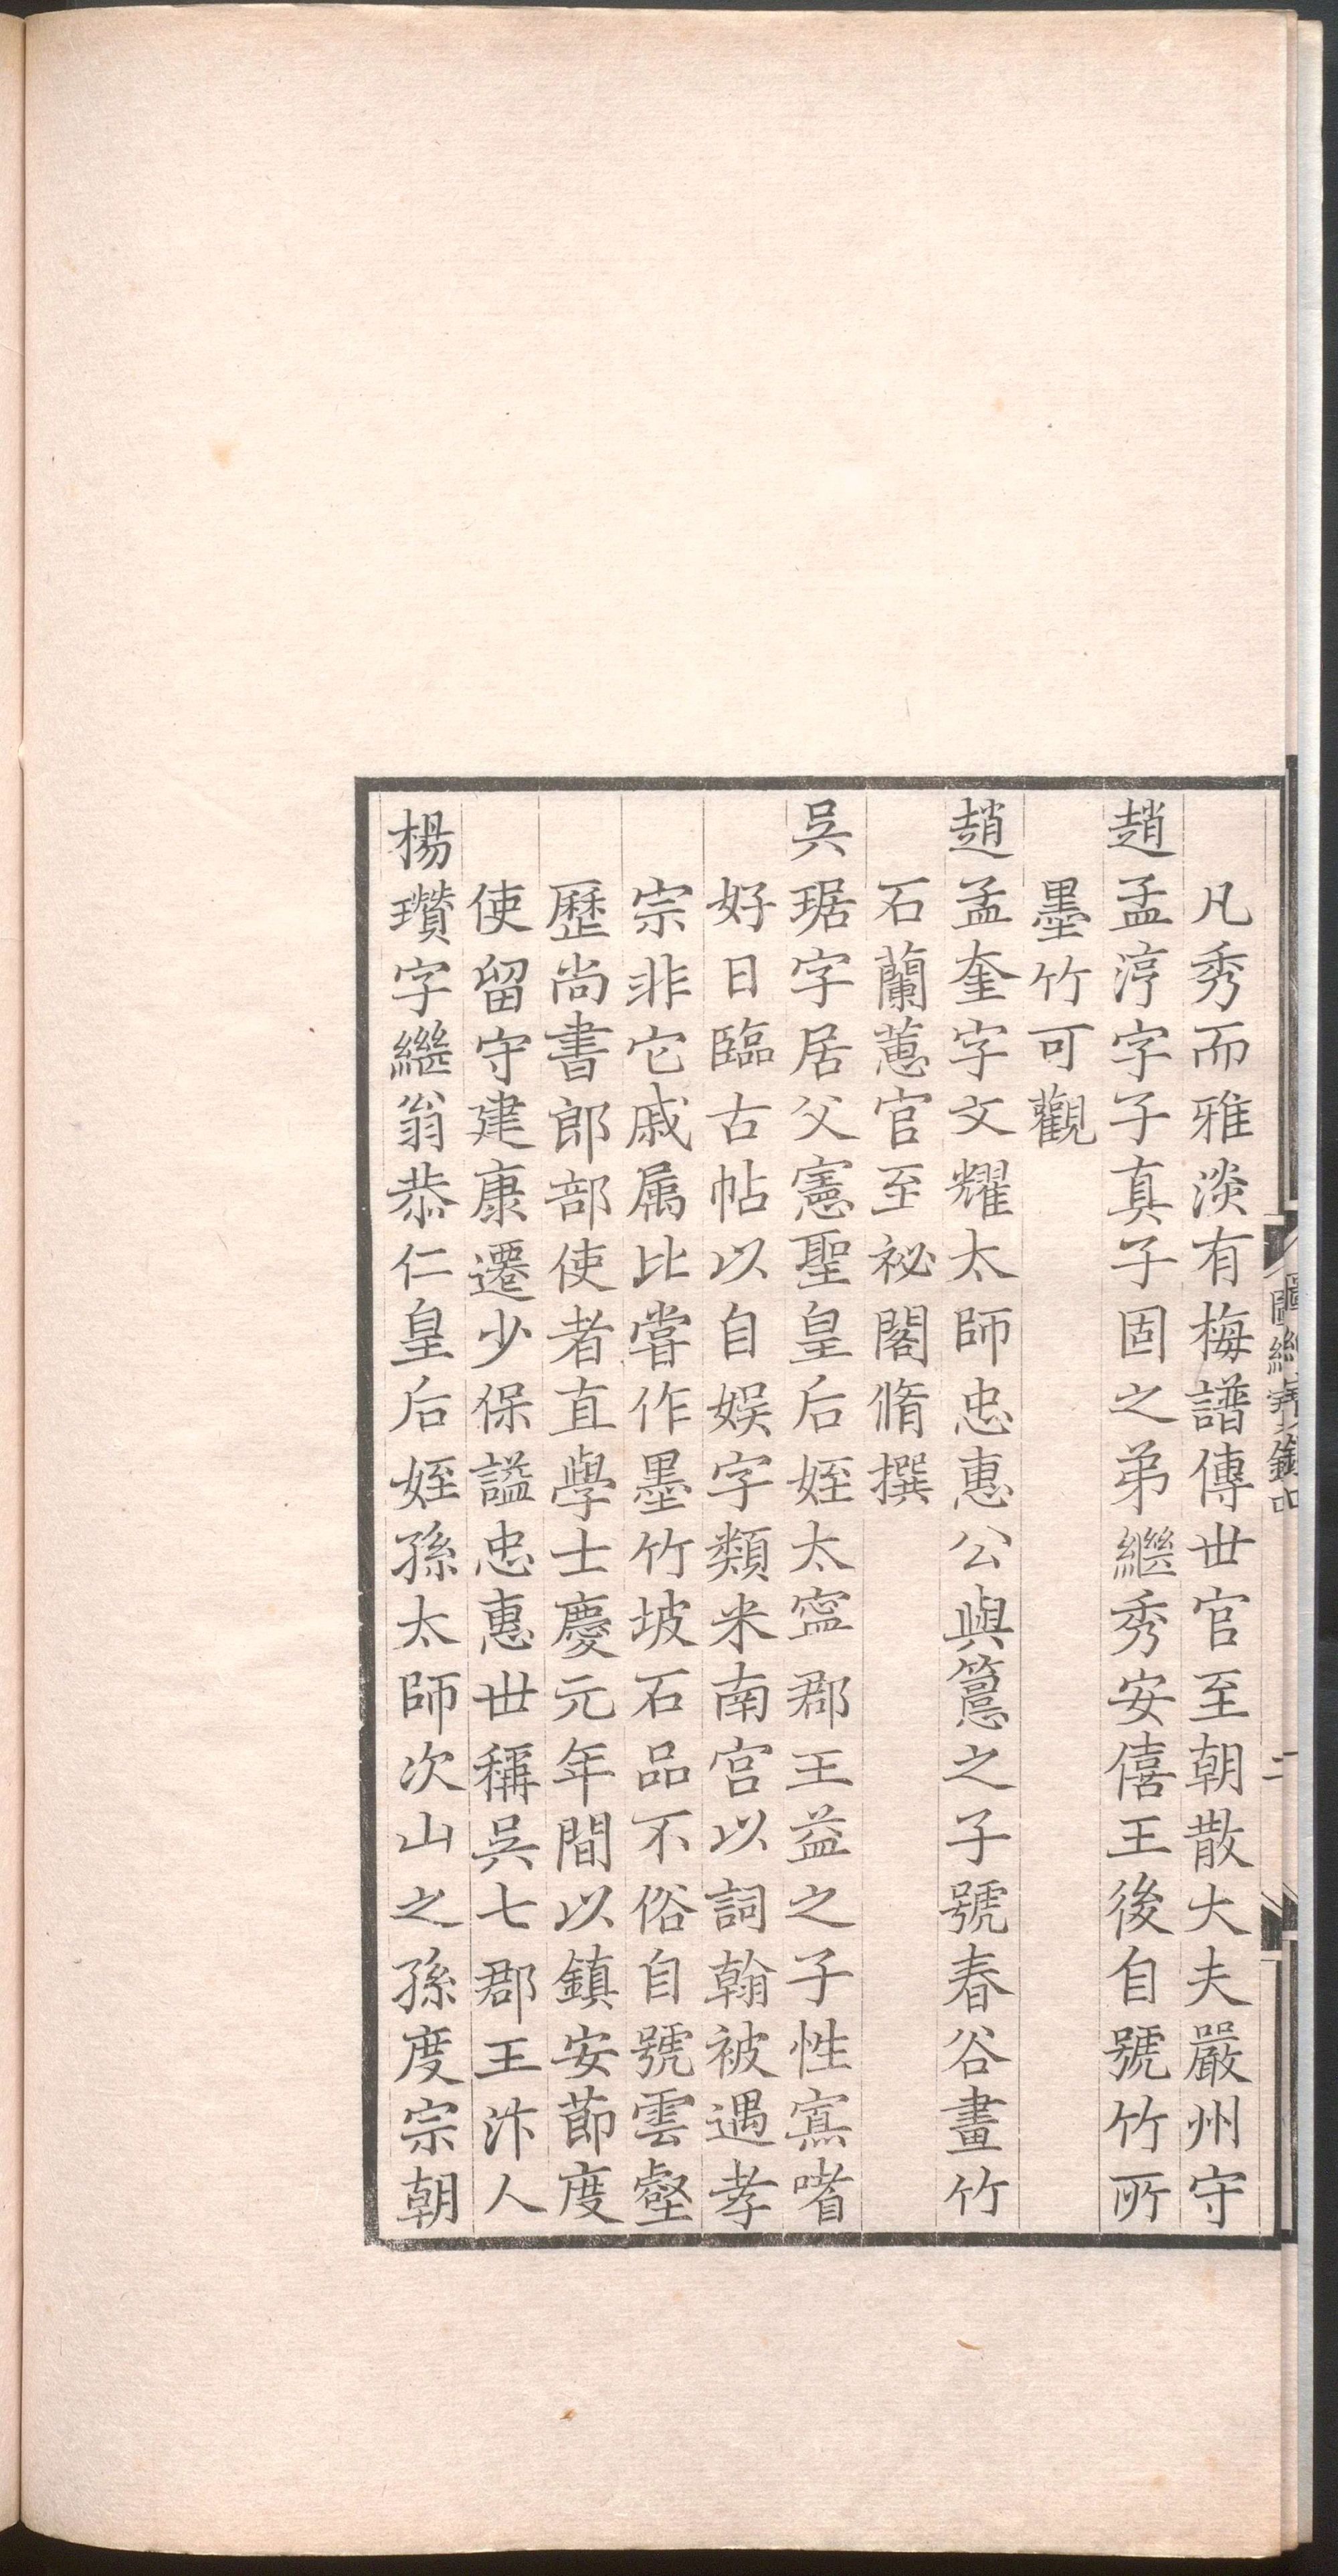 凡秀而雅淡有梅譜傳丗官至朝散大夫嚴州守
趙孟淳字子真子固之弟繼秀安僖王後自號竹所
墨竹可觀
趙孟奎字文耀太師忠惠公與𥲅之子號春谷畫竹
石蘭蕙官至祕閣脩撰
吳琚字居父憲聖皇后姪太寧郡王益之子性寡嗜
好日臨古帖以自娛字類米南宮以詞翰被遇孝
宗非它戚属比嘗作墨竹坡石品不俗自號雲壑
歷尚書郎部使者直學士慶元年間以鎮安節度
使留守建康遷少保謚忠惠丗稱吳七郡王汴人
楊瓚字繼翁恭仁皇后姪孫太師次山之孫度宗朝
圖繪寶鑑四
二